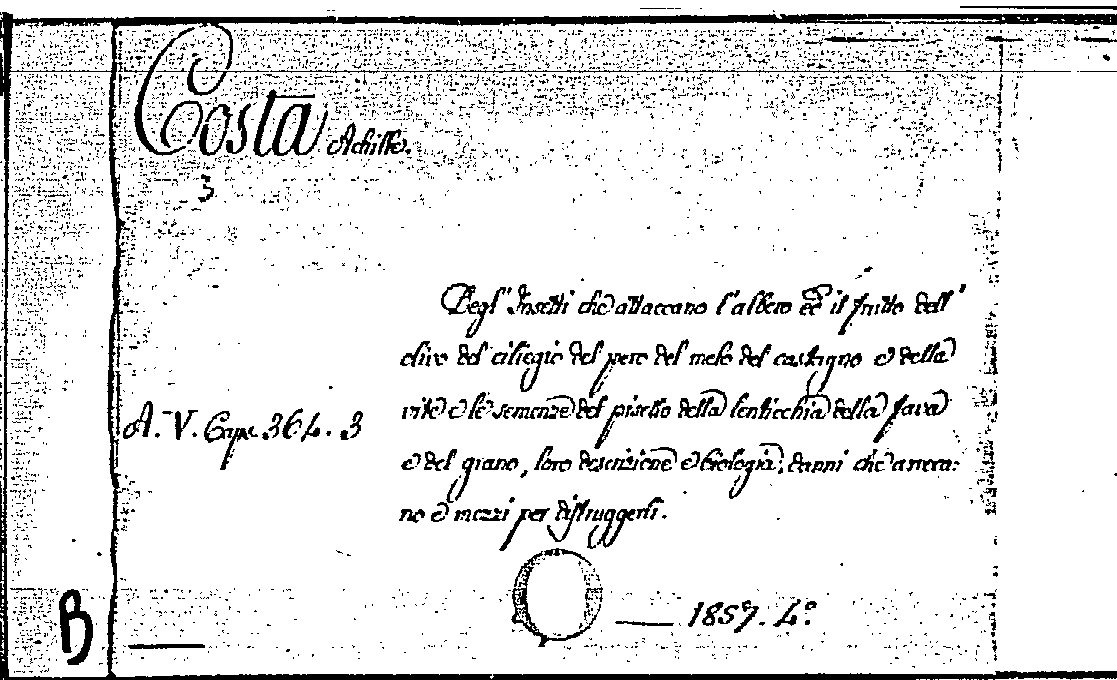 Costa Achille.
3
Degl' Insetti che attaccano l'albero ed il frutto dell'
olivo del ciliegio del pero del melo del castagno e della
vite e le semenze del pisello della lenticchia della fava
A. V. Capc. 364. 3
e del grano, loro descrizione e biologia; danni che arreca=
no e mezzi per distruggerli.
— 1857. 4.º
B